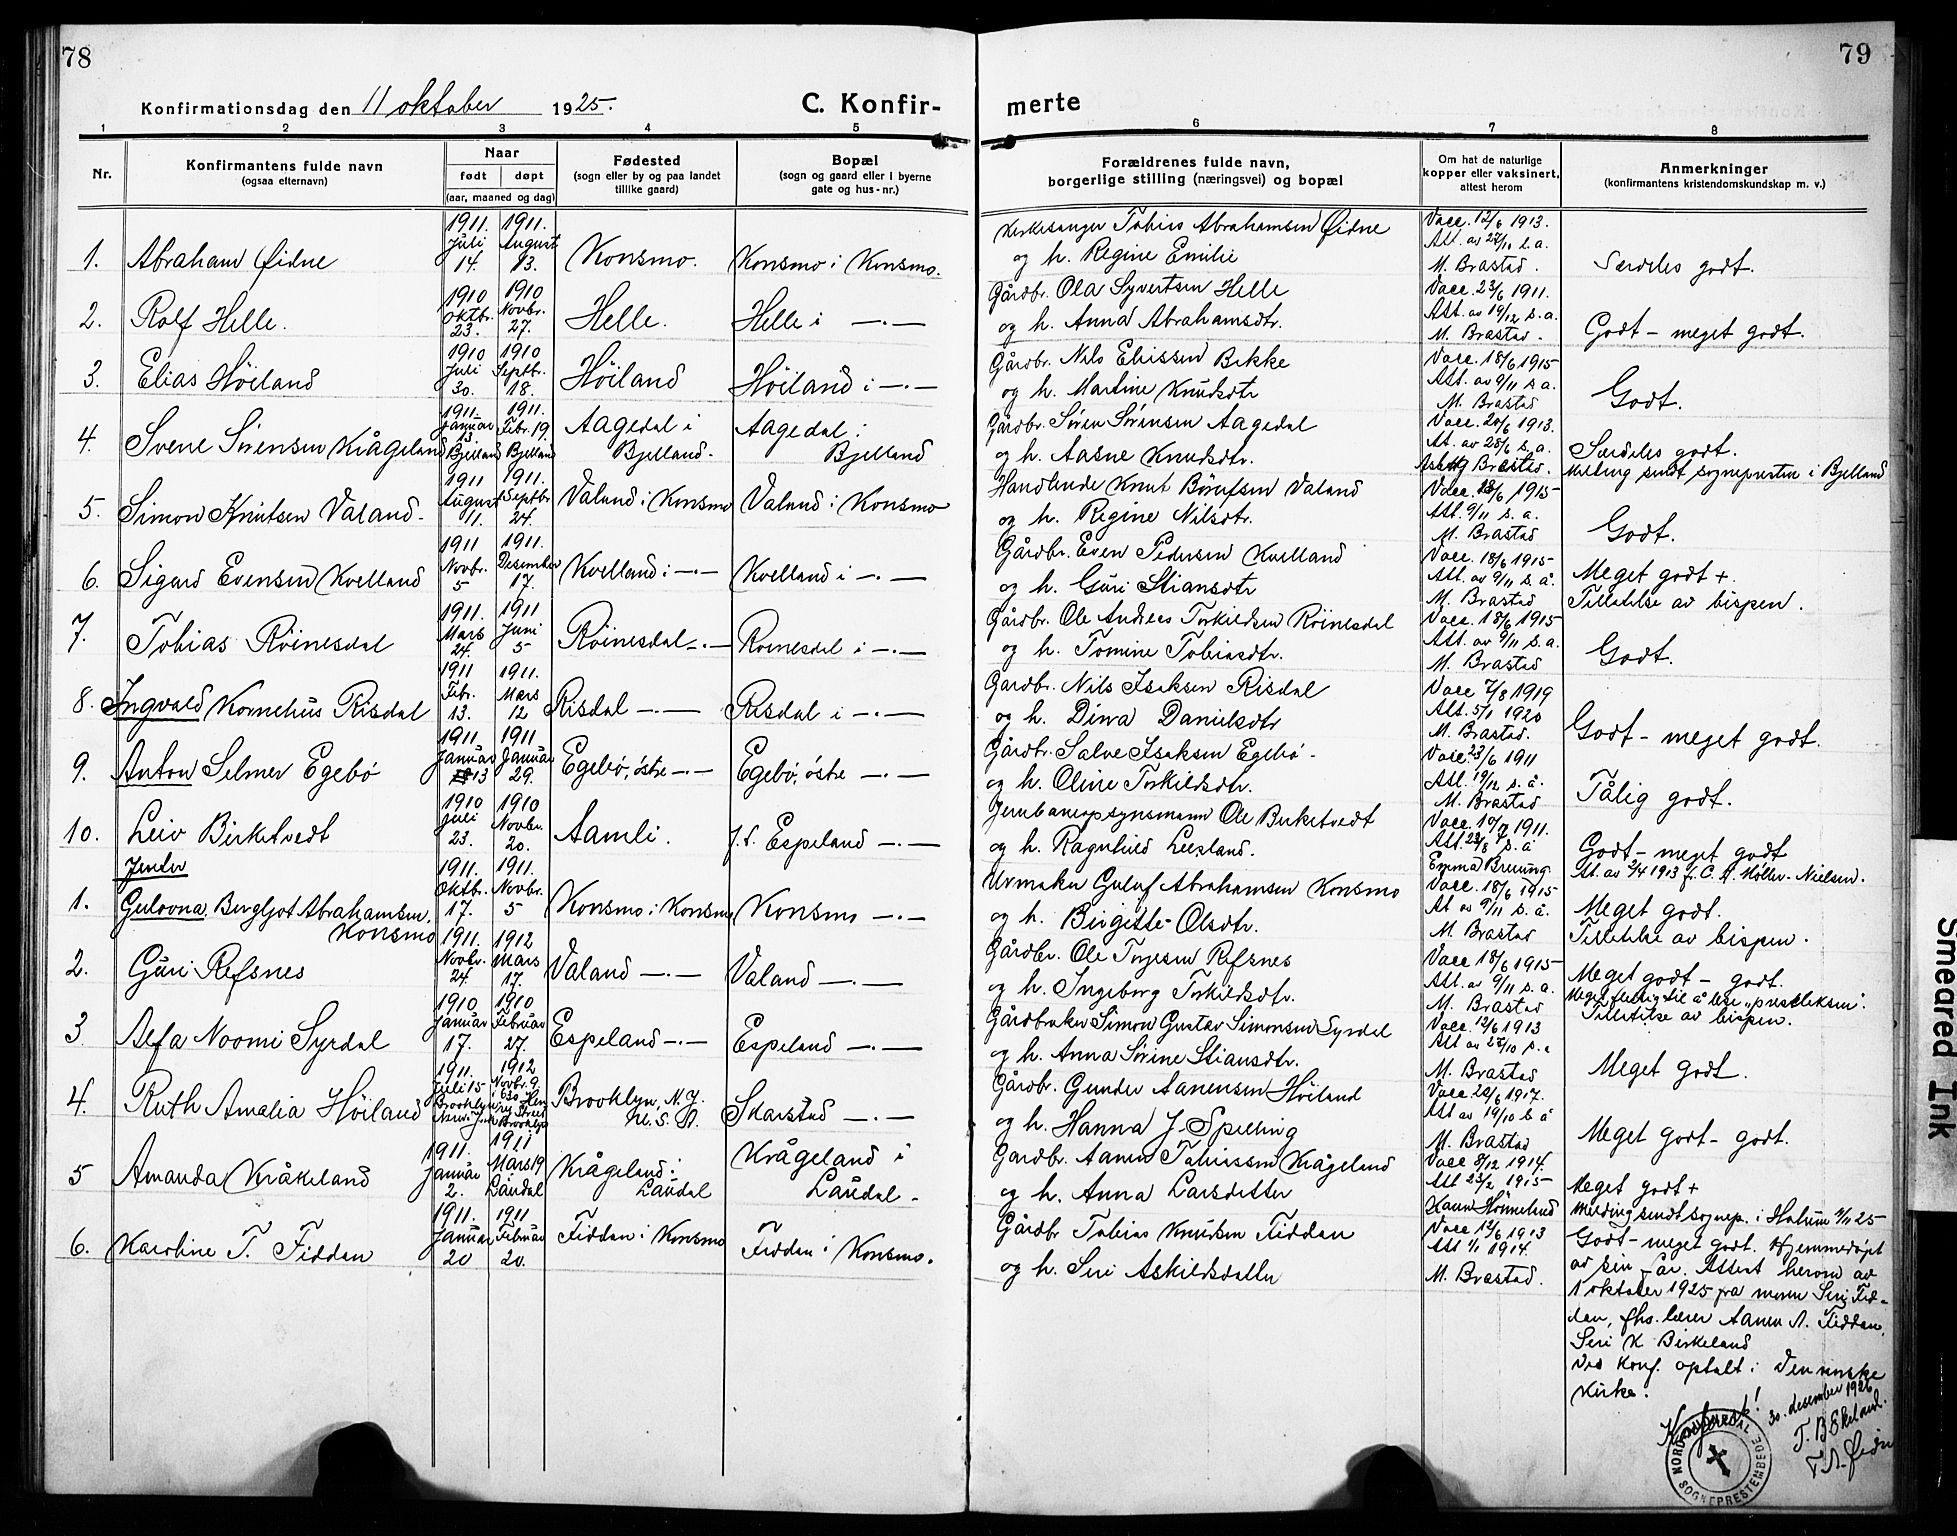 78
79
Konfirmationsdag den 11 oktober 1925.
C. Konfirmerte
1 2 3 4 5 6 7 8
Nr.
Konfirmantens fulde navn
(ogsaa efternavn)
Naar
født døpt
(aar, maaned og dag)
Fødested
(sogn eller by og paa landet
tillike gaard)
Bopæl
(sogn og gaard eller i byerne
gate og hus-nr.)
Forældrenes fulde navn,
borgerlige stilling (næringsvei) og bopæl
Om hat de naturlige
kopper eller vaksinert,
attest herom
Anmerkninger
(konfirmantens kristendomskundskap m. v.)
1. Abraham Øidne
1911. Juli 14.
1911. August 13.
Konsmo.
Konsmo i Konsmo.
Kirkesanger Tobias Abrahamsen Øidne
og h. Regine Emilie
Vacc. 12/6 1913.
Att. av 27/11 s.a.
M. Brastad.
Særdeles godt.
2. Rolf Helle.
1910 Oktbr. 23.
1910 Novbr. 27.
Helle.
Helle i —·—
Gårdbr. Ola Syvertsen Helle
og h. Anna Abrahamsdtr.
Vacc. 23/6 1911.
Att. av 19/12 s.a.
M. Brastad.
Godt - meget godt.
3. Elias Höiland
1910 Juli 30.
1910 Septbr. 18.
Höiland
Höiland i —·—
Gårdbr. Nils Eliassen Bekke
og h. Martine Knudsdtr
Vacc. 18/6 1915
Att. av 9/11 s.a.
M. Brastad
Godt.
4. Svene Sörensen Krågeland
1911. Januar 13 Bjelland
1911. Febr. 19. Bjelland
Aagedal i
Bjelland.
Aagedal i
Bjelland
Gårdbr. Sören Sörensen Aagedal
og h. Aasne Knudsdtr.
Vacc. 20/6 1913.
At. av 28/6 s.a.
Brastad.
Særdeles godt.
Melding sendt sognepresten i Bjelland
5. Simon Knutsen Valand.
1911 August 11.
1911. Septbr. 24.
Valand i Konsmo
Valand i Konsmo
Handlende Knut Börufsen Valand
og h. Regine Nilsdtr.
Vacc. 18/6 1915
Att. 9/11 s.a.
M. Brastad
Godt.
6. Sigurd Evensen Kvelland
1911 Novbr. 5
1911. Desember 17.
Kvelland i —·—
Kvelland i —·—
Gårdbr. Even Pedersen Kvelland
og h. Guri Stiansdtr
Vacc. 18/6 1915
Att. av 9/11 s.å.
M. Brastad
Meget godt +.
Tilladelse av bispen.
7. Tobias Röinesdal
1911. Mars 24.
1911 Juni 5
Röinesdal —·—
Röinesdal i —·—
Gårdbr. Ole Andreas Torkildsen Röinesdal
og h. Tomine Tobiasdtr.
Vacc. 18/6 1915
Att. av 9/11 s.a.
M. Brastad
Godt.
8. Ingvald Kornelius Risdal
1911 Febr. 13.
1911. Mars 12
Risdal —·—
Risdal i —·—
Gardbr. Nils Isaksen Risdal
og h. Dina Danielsdtr
Vacc 7/8 1919
Att. 5/1 1920
M. Brastad.
Godt - meget godt.
9. Anton Selmer Egebö
1911. Januar 13
1911 Januar 29.
Egebö, östre —·—
Egebö, östre —·—
Gårdbr. Salve Isaksen Egebö.
og h. Oline Torkildsdtr.
Vacc. 23/6 1911
Att. 19/12 s.å.
M. Brastad
Tålig godt.
10. Leiv Birketvedt
1910 Juli 23.
1910 Novbr. 20.
Aamli.
f.t. Espeland —·—
Jernbaneopsynsmann Ole Birketvedt
og h. Ragnhild Leesland.
Vacc. 10/7 1911.
Att. 23/8 s.å
Emma Breung
Godt - meget godt
At. av 2/4 1913 f. C. A. Möller-Nielsen.
Jenter
1. Gulovna Bergljot Abrahamsen
Konsmo
1911. Oktbr. 17.
1911. Novbr. 5
Konsmo i Konsmo
Konsmo —·—
Urmaker Guluf Abrahamsen Konsmo
og h. Birgitte Olsdtr.
Vacc. 18/6 1915
At av 9/11 s.å.
M. Brastad
Meget godt.
Tilladelse av bispen.
2. Guri Refsnes
1911. Novbr. 24.
1912 Mars 17.
Valand —·—
Valand —·—
Gårdbr. Ole Torjesen Refsnes
og h. Ingeborg Torkildsdtr.
Vacc 18/6 1915
Att. av 9/11 s.a.
M. Brastad
Meget godt - godt.
Meget flittig til å lese "pusleleksen".
Tilladelse av bispen.
3. Alfa Noomi Syrdal
1910 Januar 17.
1910 Februar 27.
Espeland —·—
Espeland —·—
Gårdbruker Simon Gustav Simonsen Syrdal
og h. Anna Sörine Stiansdtr.
Vacc. 12/6 1913
Att av 27/10 s.a
M. Brastad
Meget godt.
4. Ruth Amalia Höiland
1911. Juli 15 Brooklyn New-York
1912 Novbr. 9. i 630 Henry Street Brooklyn
Brooklyn, N.Y.
U.S.A.
Skarstad —·—
Gårdbr. Gunder Aanensen Höiland
og h. Hanna J. Spelling
Vacc. 20/6 1917.
Att av 19/10 s.å
M. Brastad
Meget godt - godt.
5 Amanda Kråkeland
1911. Januar 2.
1911 Mars 19 Laudal
Krågeland i
Laudal
Krågeland i
Laudal.
Gardbr. Aanen Tobiassen Krågeland
og h. Anna Larsdatter
Vacc 8/12 1914.
Att 23/2 1915
Hönneland
Meget godt +
Melding sendt sognep. i Halum 3/11 25
6. Karoline T. Fiddan
1911. Januar 20
1911 Februar 20.
Fiddan i Konsmo
Fiddan i Konsmo.
Gårdbr Tobias Knudsen Fiddan
og h. Seri Askildsdatter
Vacc 12/6 1913
Att 1/1 1914.
M. Brastad.
Godt - meget godt. Hjemmedöpt
av sin far. Attest herom av
1 oktober 1925 fra moren Seri Fid-
dan, fhs. lærer Aanen A. Fiddan,
Seri K Birkeland
Ved konf. optatt i Den norske
Kirke.
Konferert!
30. desember 1926
T. B. Ekeland.
T. A. Øidne
NORD-AUDNEDAL SOGNEPRESTEMBEDE
Smeared Ink